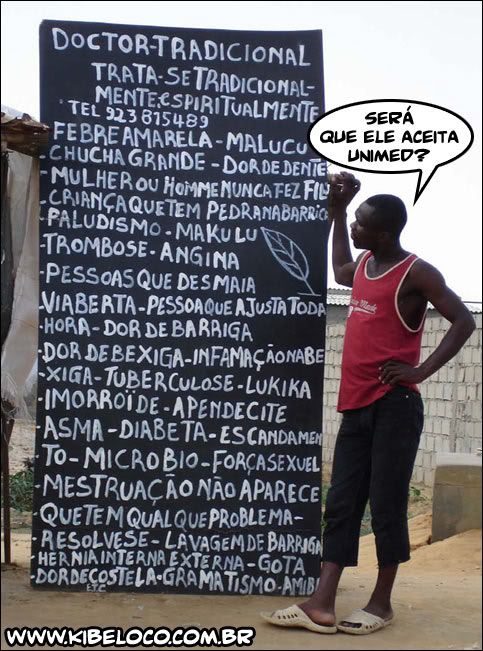 DOCTOR-TRADICIONAL
TRATA-SE TRADICIONAL-
MENTE: ESPIRITUALMENTE
TEL 923 815489
FEBRE AMARELA - MALUCU
·CHUCHA GRANDE - DOR DE DENTE
·MULHER OU HOMME NUNCA FEZ FIL
·CRIANÇA QUE TEM PEDRA NA BARRIG
·PALUDISMO - MAKULU
·TROMBOSE - ANGINA
·PESSOAS QUE DESMAIA
VIABERTA - PESSOA QUE AJUSTA TODA
·HORA - DOR DE BARRIGA
DOR DE BEXIGA - INFAMAÇÃO NA BE
·XIGA - TUBERCULOSE - LUKIKA
·IMORROÏDE - APENDECITE
ASMA - DIABETA - ESCANDAMEN
TO - MICROBIO - FORÇA SEXUEL
MESTRUAÇÃO NÃO APARECE
QUE TEM QUALQUE PROBLEMA-
RESOLVESE - LAVAGEM DE BARRIGA
HERNIA INTERNA EXTERNA - GOTA
DOR DE COSTELA - GRAMATISMO - AMIBI
ETC
SERÁ
QUE ELE ACEITA
UNIMED?
WWW.KIBELOCO.COM.BR